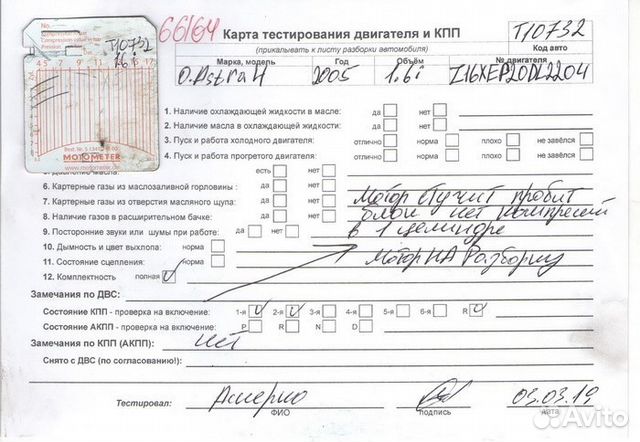 66164
T10732
1.6
4 5 7 10 12 15 17
MOTOMETER
www.motometer.de
Карта тестирования двигателя и КПП
(прикалывать к листу разборки автомобиля)
T10732
Код авто
Марка, модель Год Объём № двигателя
O.Astra H 2005 1.6i Z16XEP20DL2204
1. Наличие охлаждающей жидкости в масле: да нет
2. Наличие масла в охлаждающей жидкости: да нет
3. Пуск и работа холодного двигателя: отлично норма плохо не завёлся
4. Пуск и работа прогретого двигателя: отлично норма плохо не завёлся
есть нет
6. Картерные газы из маслозаливной горловины : да нет
7. Картерные газы из отверстия масляного щупа: да нет
8. Наличие газов в расширительном бачке: да нет
9. Посторонние звуки или шумы при работе: да нет
10. Дымность и цвет выхлопа: норма
11. Состояние сцепления: норма
12. Комплектность полная
Мотор стучит пробит
блок нет компресий
в 1 целиндре
Мотор на Разборку
Замечания по ДВС:
Состояние КПП - проверка на включение: 1-я 2-я 3-я 4-я 5-я 6-я R
Состояние АКПП - проверка на включение: P R N D
Замечания по КПП (АКПП): нет
Снято с ДВС (по согласованию!):
Тестировал:
ФИО подпись дата
03.03.19
Avito